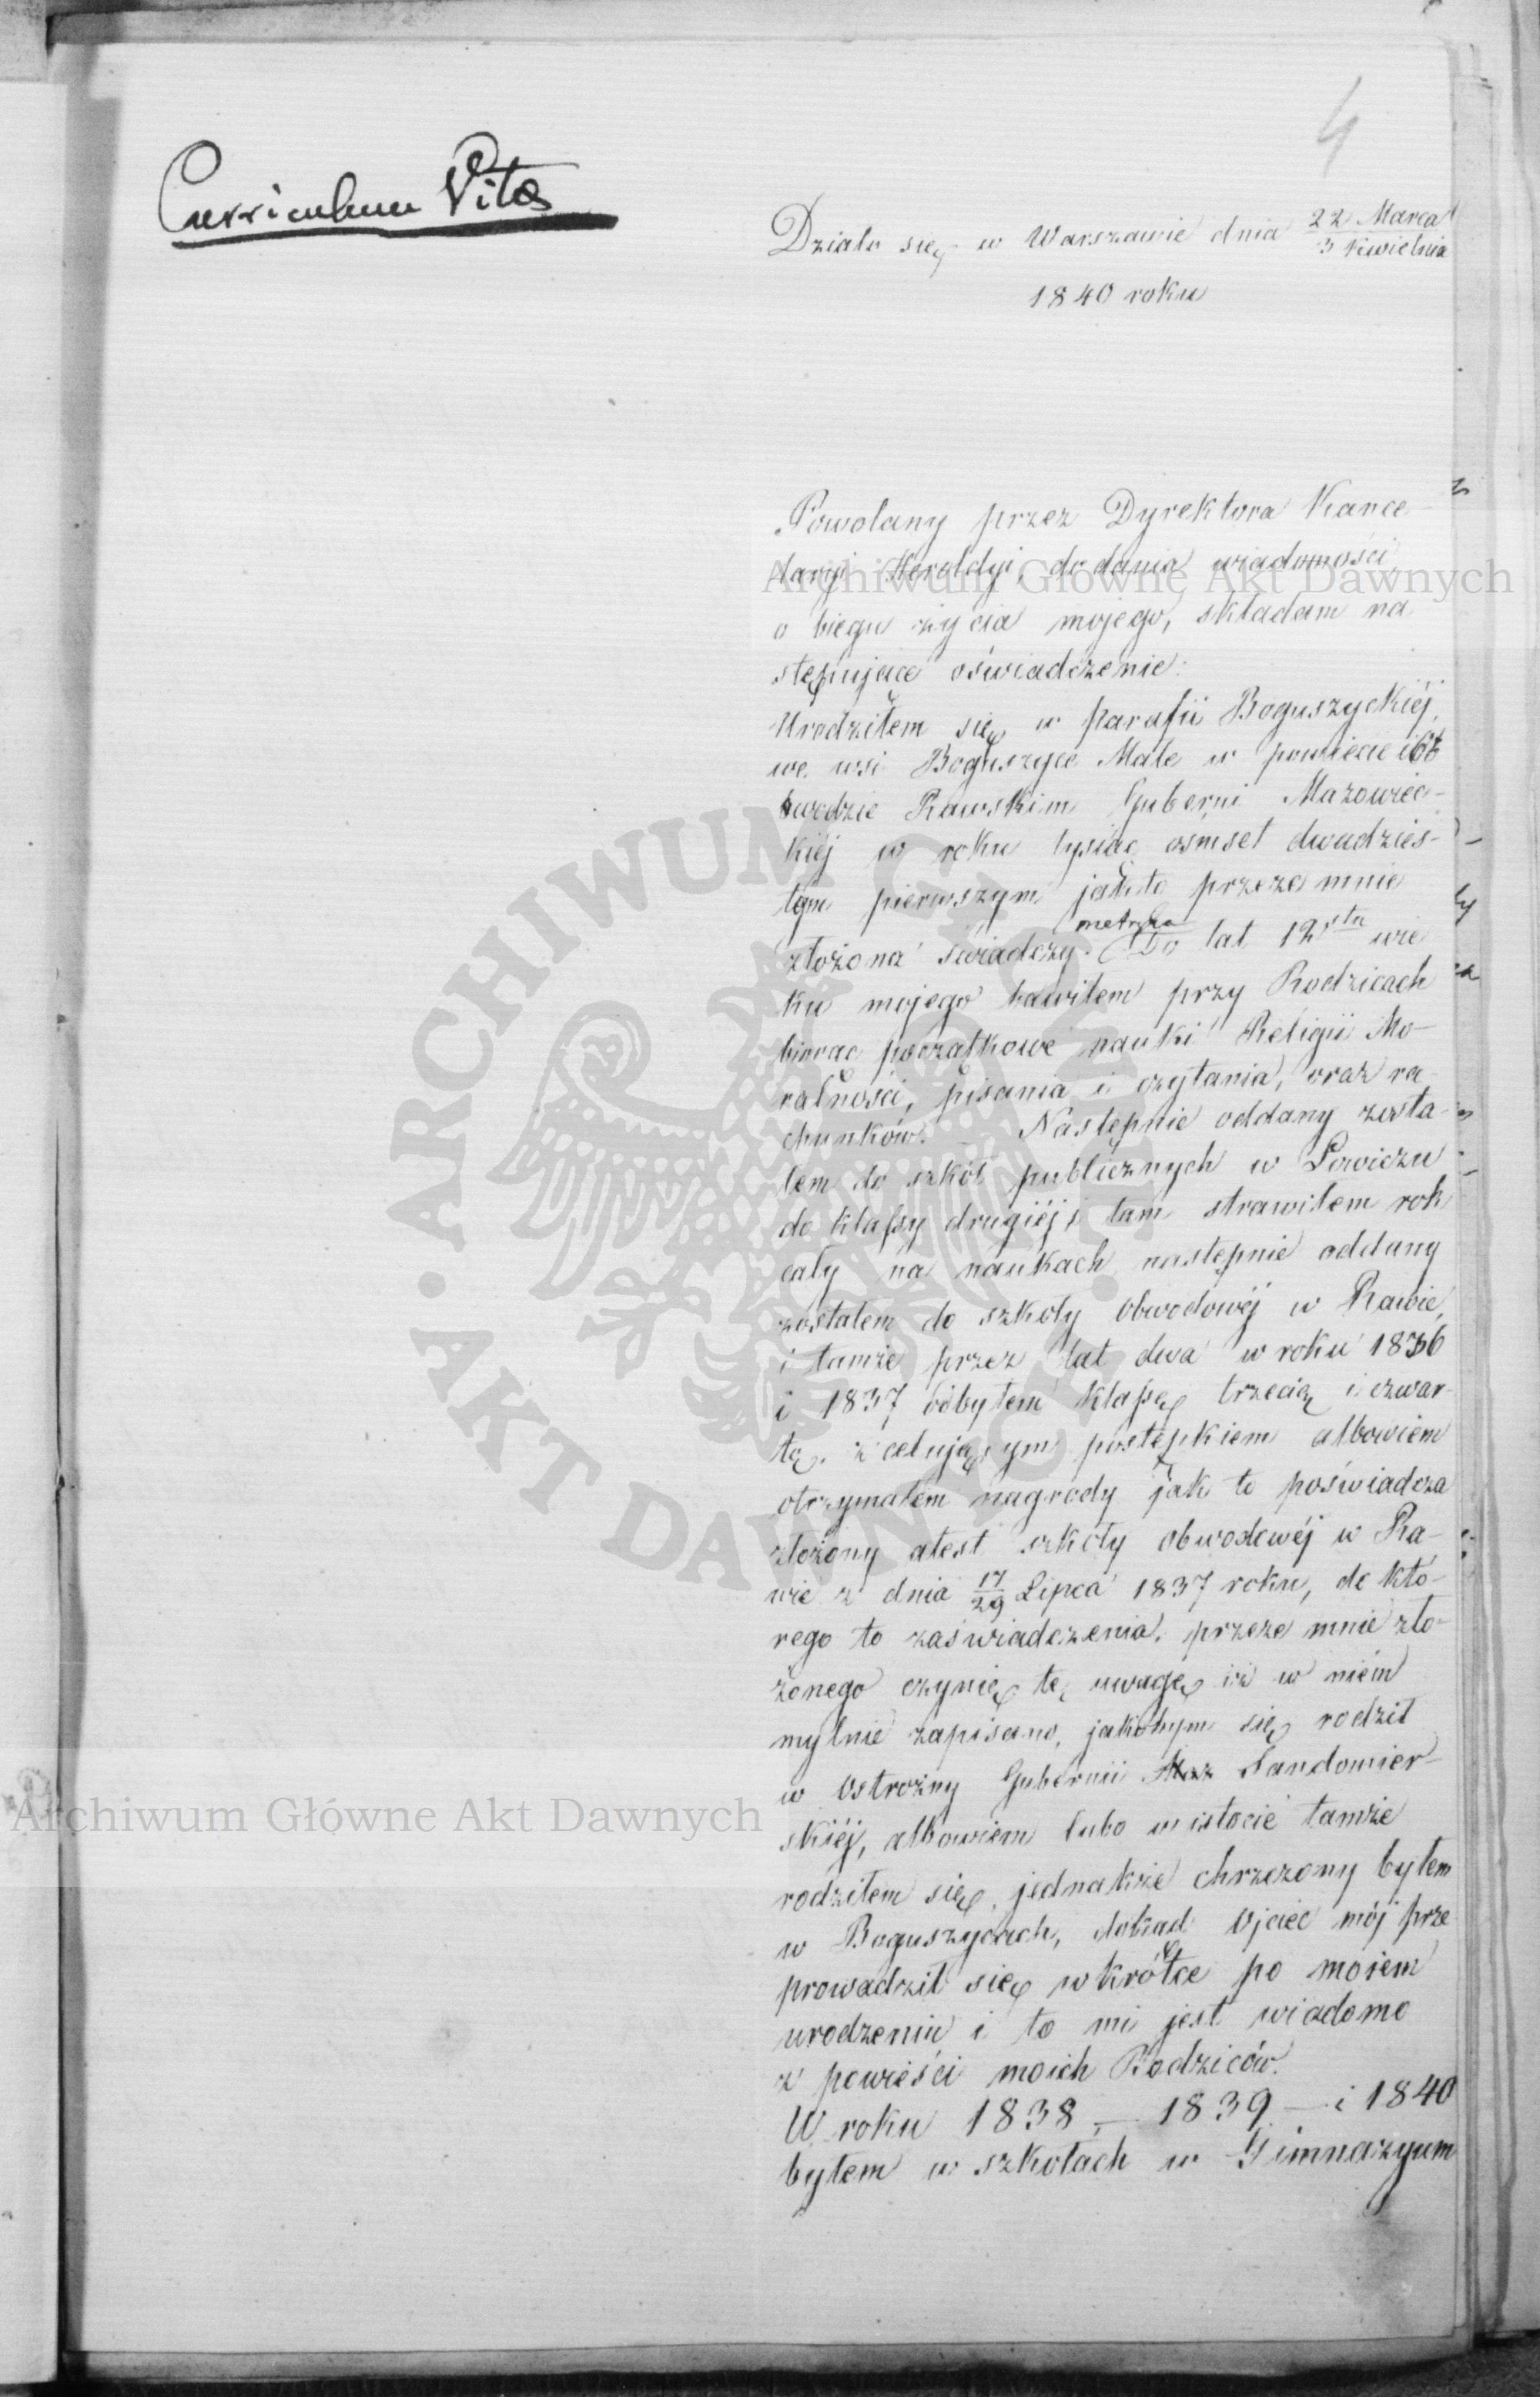 4
Curriculum Vitae
Działo się w Warszawie dnia 22 Marca / 3 Kwietnia
1840 roku
Powołany przez Dyrektora Kance-
laryi Heroldyi, do dania wiadomości
o biegu życia mojego, składam na
stępujące oświadczenie:
Urodziłem się w Parafii Boguszyckiéj,
we wsi Boguszyce Małe w powiecie i Ob
wodzie Rawskim Guberni Mazowiec-
kiéj w roku tysiąc osmset dwudzies-
tym pierwszym jak to przeze mnie
złożona metryka świadczy. Do lat 12stu wie
ku mojego bawiłem przy Rodzicach
biorąc początkowe nauki Religii Mo-
ralności, pisania i czytania, oraz ra-
chunków. – Następnie oddany zosta-
łem do szkół publicznych w Łowiczu
do klassy drugiéj i tam strawiłem rok
cały na naukach następnie oddany
zostałem do szkoły Obwodowéj w Rawie,
i tamże przez lat dwa w roku 1836
i 1837 odbyłem klassę trzecią i czwar-
tą, z celującym postępkiem albowiem
otrzymałem nagrody jak to poświadcza
złożony atest szkoły obwodowéj w Ra-
wie z dnia 17/29 Lipca 1837 roku, do któ-
rego to zaświadczenia, przeze mnie zło-
żonego czynię tę uwagę iż w niém
mylnie zapisano, jakobym się rodził
w Ostrożny Gubernii Maz Sandomier-
skiéj, albowiem lubo w istocie tamże
rodziłem się, jednakże chrzczony byłem
w Boguszycach, dokąd Ojciec mój prze
prowadził się wkrótce po mojem
urodzeniu i to mi jest wiadomo
z powieści moich Rodziców.
W roku 1838, – 1839 – i 1840
byłem w szkołach w Gimnazyum
Archiwum Główne Akt Dawnych
Archiwum Główne Akt Dawnych
ARCHIWUM GŁÓWNE • AKT DAWNYCH •